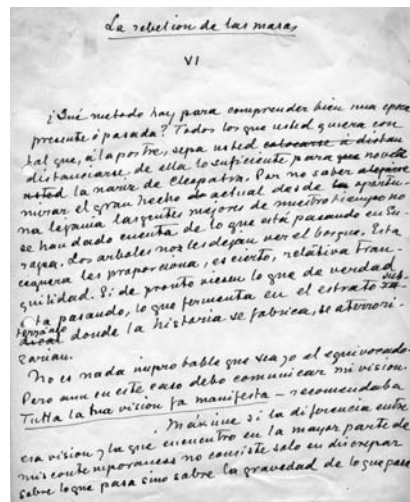 La rebelion de las masas
VI
¿Qué metodo hay para comprender bien una epoca
presente ó pasada? Todos los que usted quiera con
tal que, á la postre, sepa usted colocarse á distan
distanciarse de ella lo suficiente para que no vea
usted la nariz de Cleopatra. Por no saber alejarse
mirar el gran hecho actual desde la oportu-
na lejania las gentes mejores de nuestro tiempo no
se han dado cuenta de lo que está pasando en Eu-
ropa. Los arboles no les dejan ver el bosque. Esta
ceguera les proporciona, es cierto, relativa tran-
quilidad. Si de pronto viesen lo que de verdad
está pasando, lo que fermenta en el estrato sub-
terráneo donde la historia se fabrica, se aterrori-
zarian.
No es nada improbable que sea yo el equivocado.
Pero aun en este caso debo comunicar mi vision.
Tutta la tua vision fa manifesta – recomendaba
. Máxime si la diferencia entre
esa vision y la que encuentro en la mayor parte de
mis contemporaneos no consiste solo en discrepar
sobre lo que pasa sino sobre la gravedad de lo que pasa